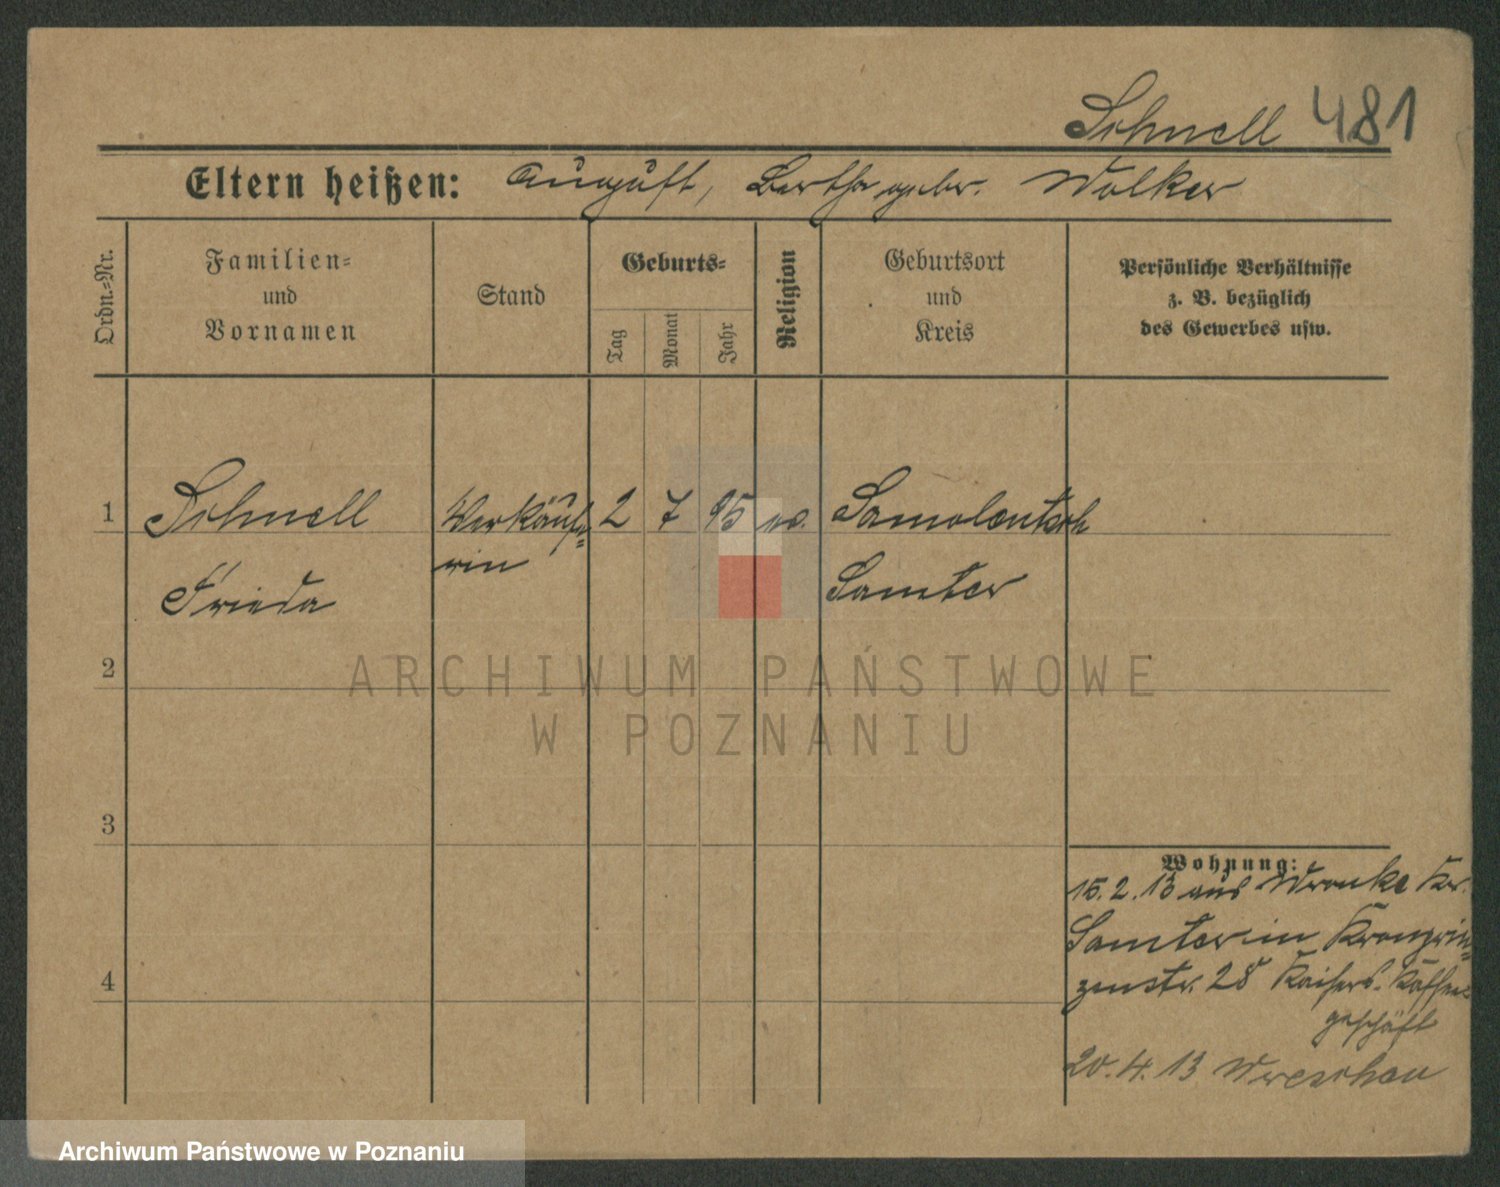 Schnell 481
Eltern heißen: August, Bertha gebr. Wolker
Ordn.-Nr.
Familien-
und
Vornamen
Stand
Geburts-
Tag
Monat
Jahr
Religion
Geburtsort
und
Kreis
Persönliche Verhältnisse
z. B. bezüglich
des Gewerbes usw.
1 Schnell Verkäufe- 2 7 95 Samolentsch
Frieda rin Samter
2
3
4
Wohnung:
15.2.13 aus Wronke Kr.
Samter in Kronprin-
zenstr. 28 Kaisers-Kaffee-
geschäft
20.4.13 Wreschen
ARCHIWUM PAŃSTWOWE
W POZNANIU
Archiwum Państwowe w Poznaniu